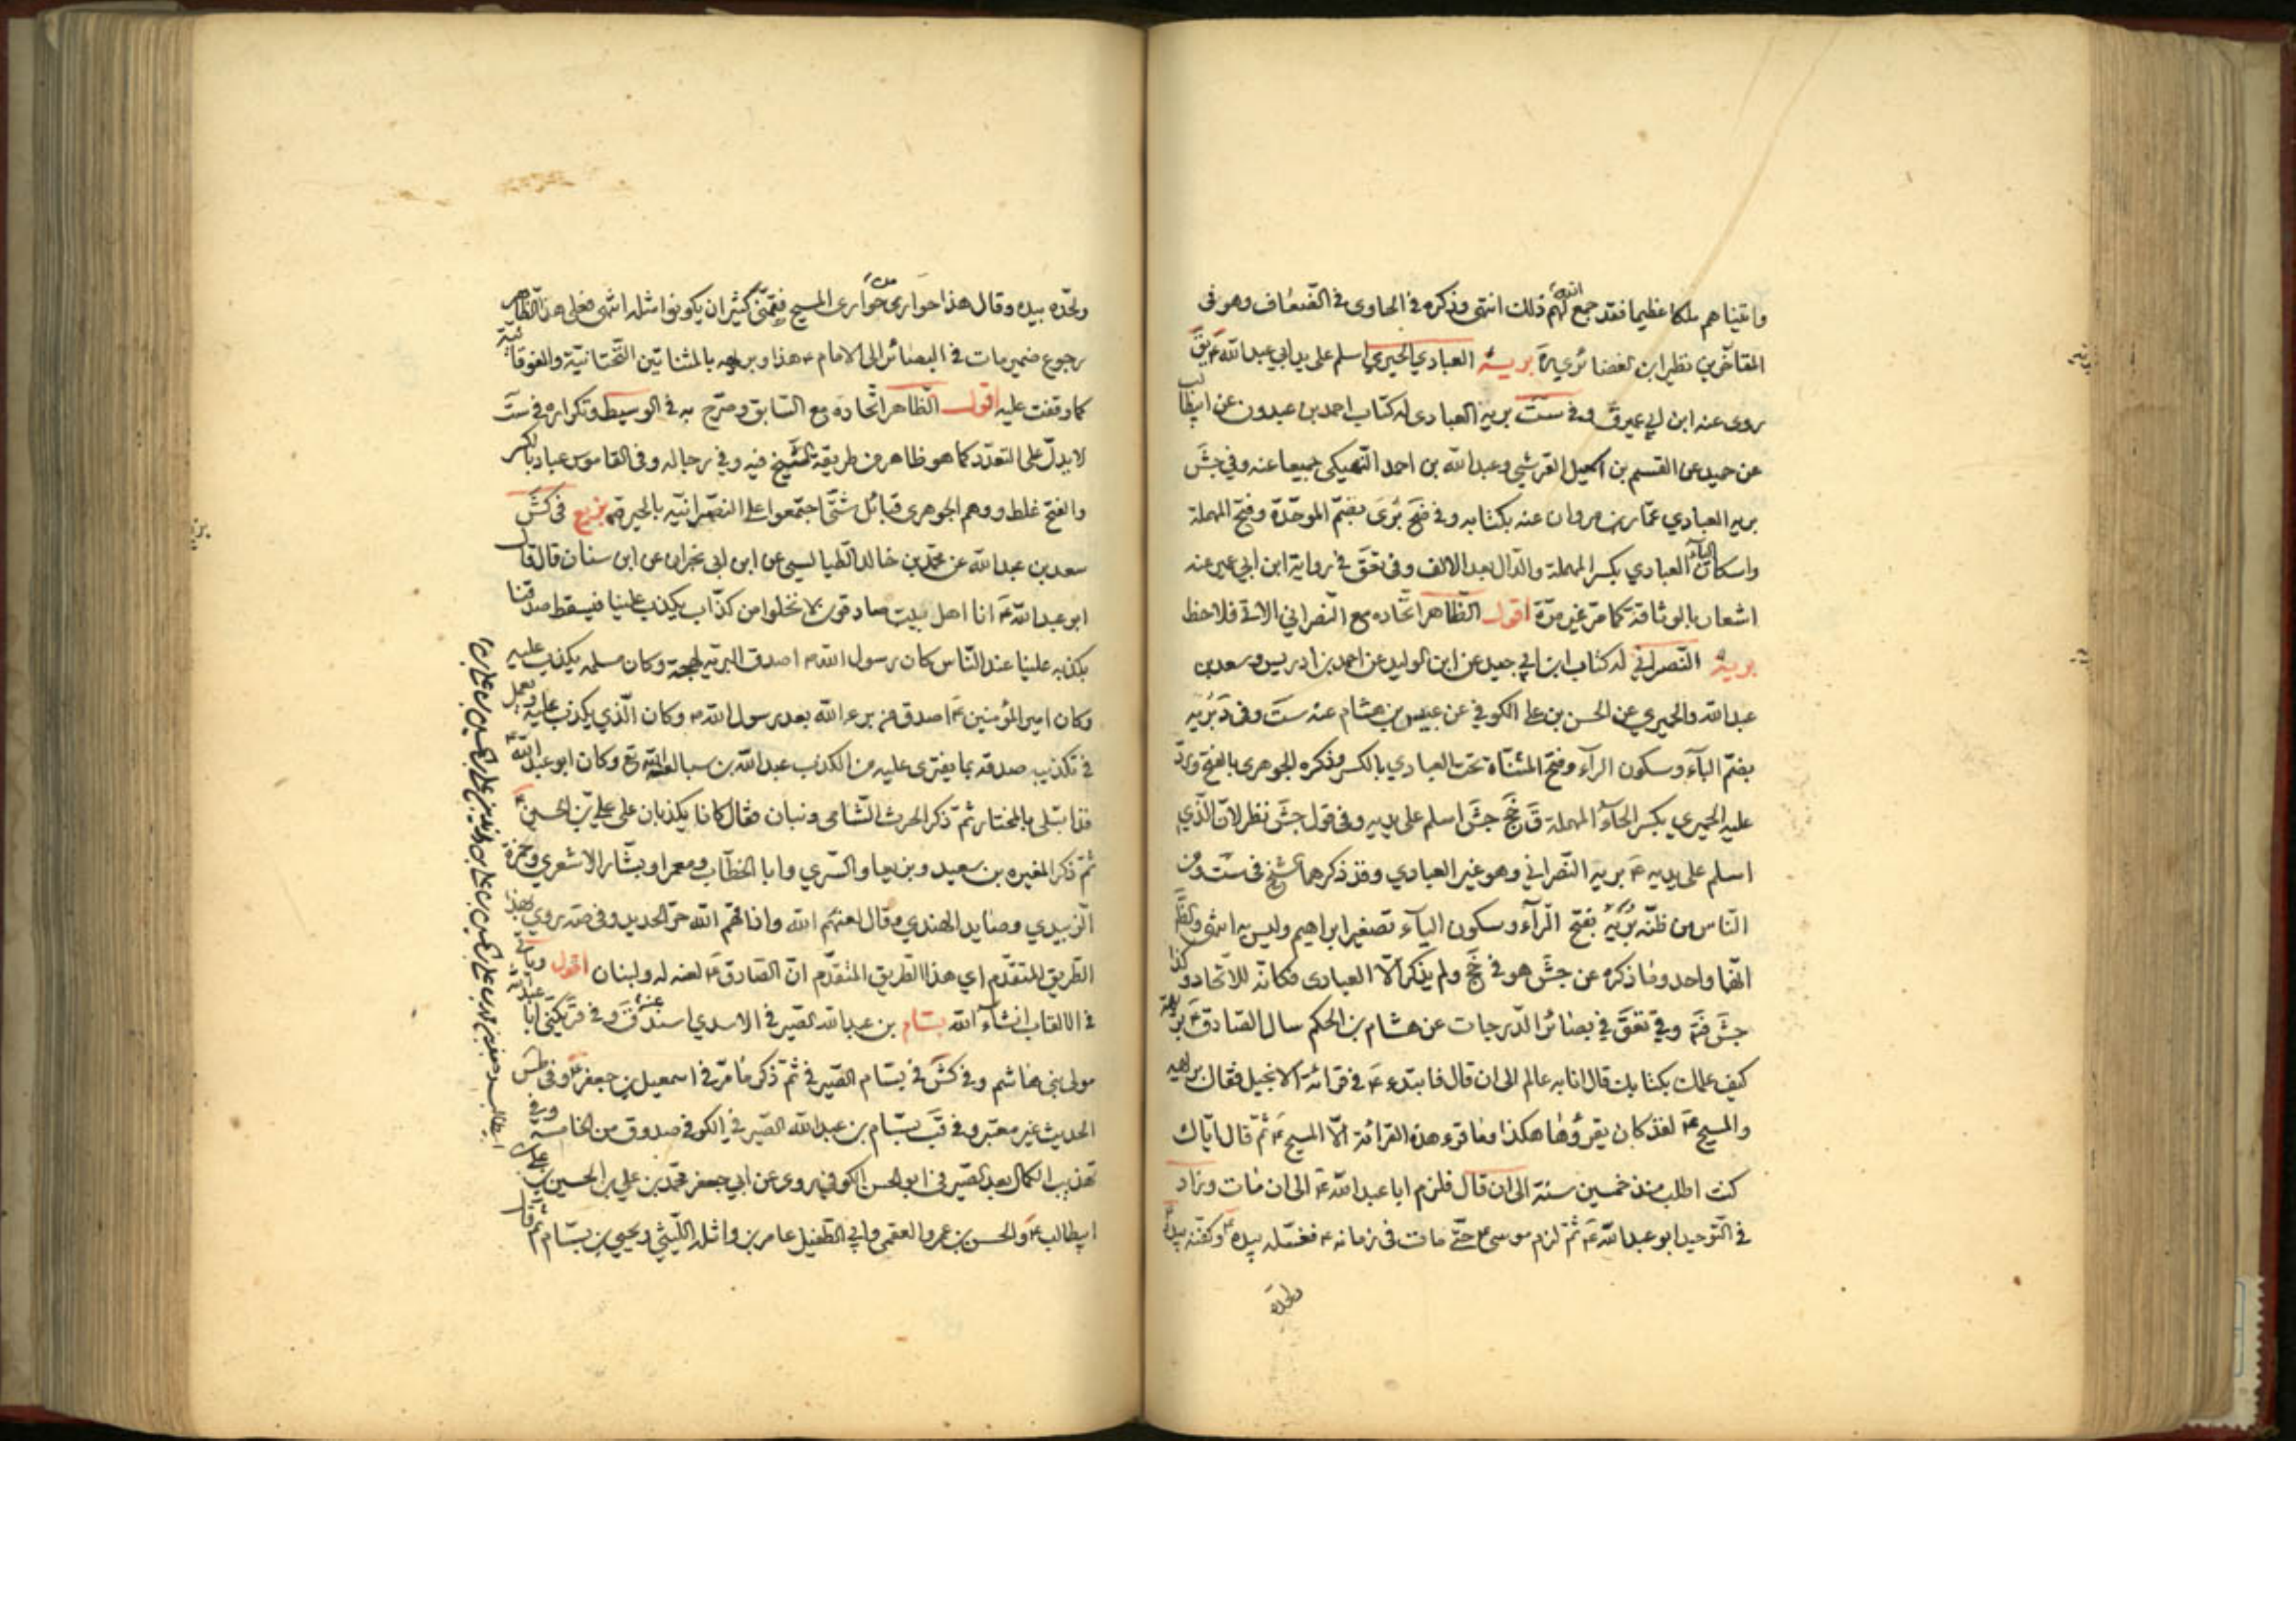 واتيناهم ملكا عظيما فقد جمع الله لهم ذلك انتهى وذكره في الحاوى في الضعاف وهو في
المقام من نظر ابن الغضائري يرة بريه العبادي الحيري اسلم على يد ابي عبد الله ع ق
روى عنه ابن ابي عمير ق وفي ست بريه العبادى له كتاب احمد بن عبدون عن ابيطالب
عن حميد عن القسم بن اسمعيل القرشي وعبد الله بن احمد النهيكي جميعا عنه وفي جش
بريه العبادي عمار بن مروان عنه بكتابه وفي ضح بضم الموحدة وفتح المهملة
واسكان الياء العبادي بكسر المهملة والدال بعد الالف وفي تعق في رواية ابن ابي عمير عنه
اشعار بالوثاقة كما مر غير مرة اقول الظاهر اتحاده مع النصراني الاتي فلاحظ
بريه النصراني له كتاب ابن ابي جيد عن ابن الوليد عن احمد بن ادريس وسعد بن
عبد الله والحميري عن الحسن بن على الكوفي عن عبيس بن هشام عنه ست وفي د بريه
بضم الباء وسكون الراء وفتح المثناة تحت العبادي بالكسر وذكره الجوهرى بالفتح ورد
عليه الحيري بكسر الحاء المهملة ق جخ جش اسلم على يديه وفي قول جش نظر لان الذي
اسلم على يديه ع بريه النصراني وهو غير العبادي وقد ذكرهما الشيخ في ست ومن
الناس من ظنه بريه بفتح الراء وسكون الياء تصغير ابراهيم وليس به انتهى والظ
انهما واحد وما ذكره عن جش هو في جخ ولم يذكر الا العبادى فكانه للاتحاد وكذا
جش فتد وفي تعق في بصائر الدرجات عن هشام بن الحكم سال الصادق ع بريهة
كيف علمك بكتابك قال انا به عالم الى ان قال فابتدء ع في قرائة الانجيل فقال بريهة
والمسيح ع لقد كان يقرؤها هكذا وما قرء هذه القرائة الا المسيح ع ثم قال اياك
كنت اطلب منذ خمسين سنة الى ان قال فلزم ابا عبد الله ع الى ان مات وزاد
في التوحيد ابو عبد الله ع ثم لزم موسى ع حتى مات في زمانه ع فغسله بيده وكفنه بيده
ولحده
ولحده بيده وقال هذا حوارى من حوارى المسيح فتمنى كثير ان يكونوا مثله انتهى فعلى هذا الظاهر
رجوع ضمير مات في البصائر الى الامام ع هذا وبريهه بالمثناتين التحتانية والفوقانية
كما وقفت عليه اقول الظاهر اتحاده مع السابق وصرح به في الوسيط وتكراره في ست
لا يدل على التعدد كما هو ظاهر من طريقة الشيخ فيه وفي رجاله وفي القاموس عباد بالكسر
والفتح غلط ووهم الجوهرى قبائل شتى اجتمعوا على النصرانيه بالحيرة بزيع في كش
سعد بن عبد الله عن محمد بن خالد الطيالسي عن ابن ابي نجران عن ابن سنان قال قال
ابو عبد الله ع انا اهل بيت صادقون لا نخلوا من كذاب يكذب علينا فيسقط صدقنا
بكذبه علينا عند الناس كان رسول الله ص اصدق البريه لهجة وكان مسلمه يكذب عليه
وكان امير المؤمنين ع اصدق من برء الله بعد رسول الله ص وكان الذي يكذب عليه ويعمل
في تكذيب صدقه بما يفترى عليه من الكذب عبد الله بن سبا لعنه الله تع وكان ابو عبد الله
قد ابتلى بالمختار ثم ذكر الحرث الشامي وبنان فقال كانا يكذبان على علي بن الحسين ع
ثم ذكر المغيره بن سعيد وبزيعا والسري وابا الخطاب ومعمرا وبشار الاشعري وحمزة
الزبيدي وصايد الهندي وقال لعنهم الله واذاقهم الله حر الحديد وفي صه روي بهذا
الطريق المتقدم اي هذا الطريق المتقدم ان الصادق ع لعنه له ولبنان اقول
في الالقاب انشاء الله بسام بن عبد الله الصيرفي الاسدي اسند عنه ق وفي قر يكنى ابا عبد الله
مولى بني هاشم وفي كش في بسام الصيرفي ثم ذكر ما مر في اسمعيل بن جعفر ع وفي طس
الحديث غير معتبر وفي قب بسام بن عبد الله الصيرفي الكوفي صدوق من الخامسة وفي
تهذيب الكمال بعد الصيرفي ابو الحسن الكوفي روى عن ابي جعفر محمد بن علي بن الحسين بن على بن
ابيطالب ع والحسن بن عمرو الفقمي وابي الطفيل عامر بن واثلة الليثي ويحيى بن بسام ثم قال